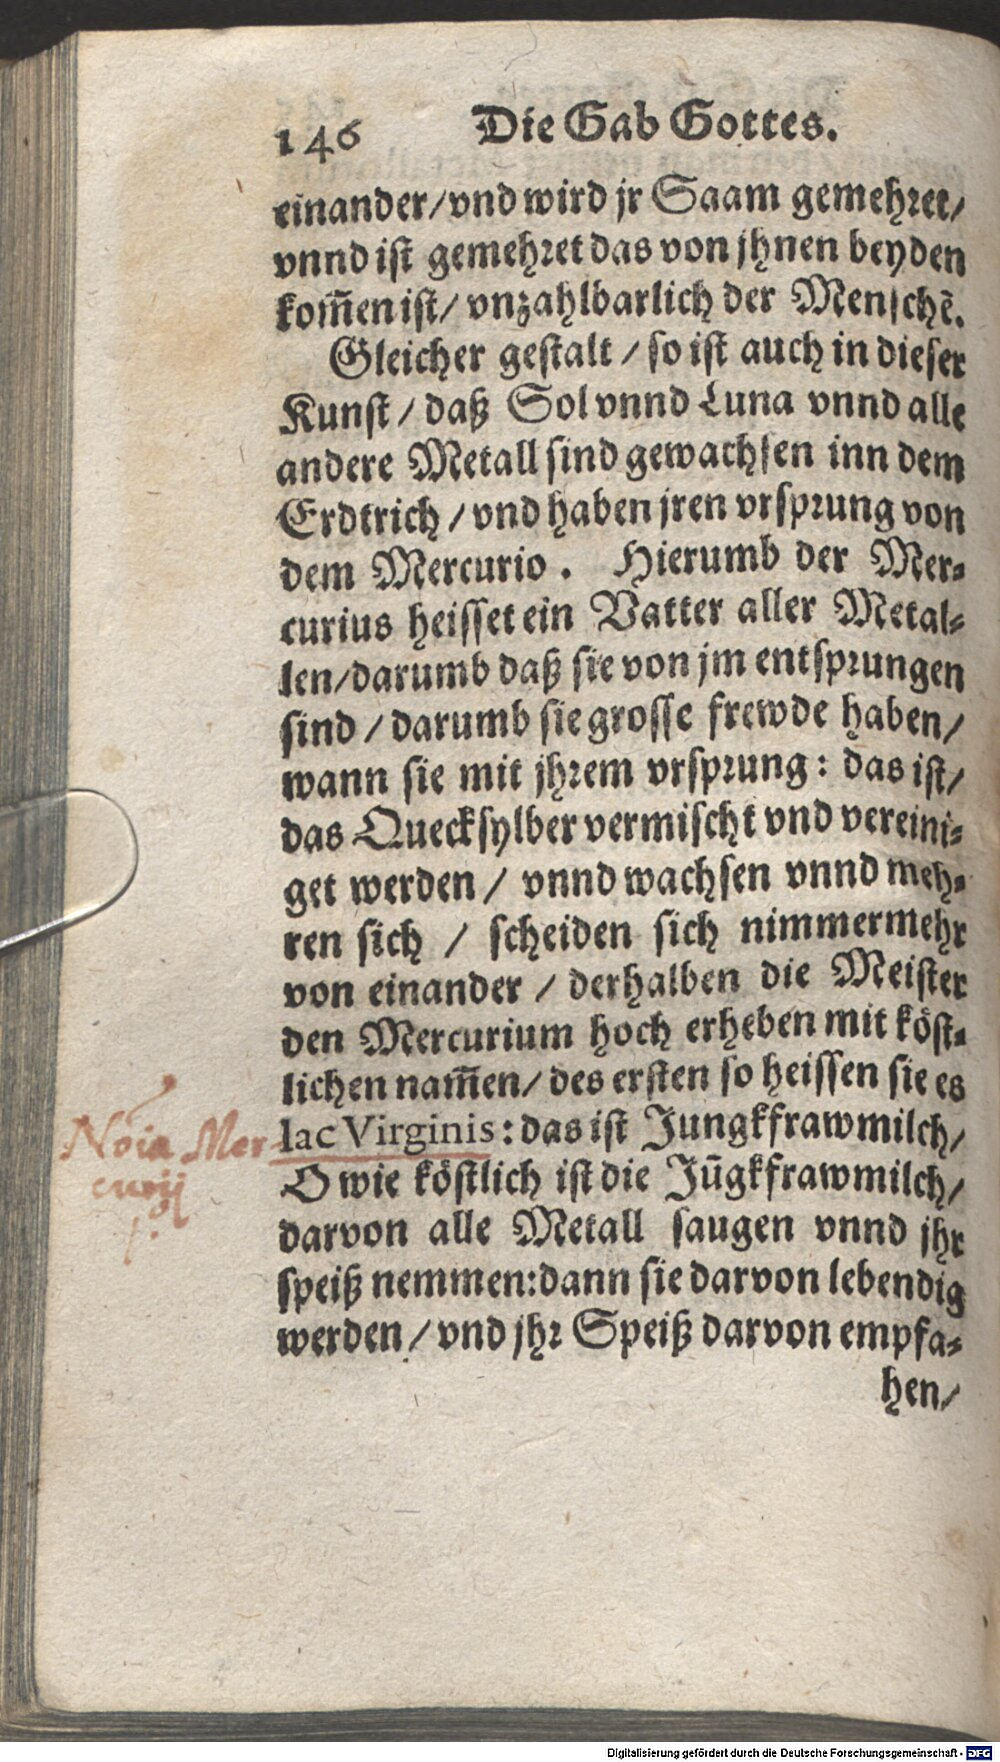 146 Die Gab Gottes.
einander/vnd wird jr Saam gemehret/
vnnd ist gemehret das von jhnen beyden
kom̃en ist/ vnzahlbarlich der Menschẽ.
Gleicher gestalt / so ist auch in dieser
Kunst / daß Sol vnnd Luna vnnd alle
andere Metall sind gewachsen inn dem
Erdtrich / vnd haben jren vrsprung von
dem Mercurio. Hierumb der Mer-
curius heisset ein Vatter aller Metal-
len/darumb daß sie von jm entsprungen
sind / darumb sie grosse frewde haben/
wann sie mit jhrem vrsprung: das ist/
das Quecksylber vermischt vnd vereini-
get werden / vnnd wachsen vnnd meh-
ren sich / scheiden sich nimmermehr
von einander / derhalben die Meister
den Mercurium hoch erheben mit köst-
lichen nam̃en/ des ersten so heissen sie es
Noı̃a Mer
curij
lac Virginis: das ist Jungkfrawmilch/
O wie köstlich ist die Jũgkfrawmilch/
darvon alle Metall saugen vnnd jhr
speiß nemmen:dann sie darvon lebendig
werden / vnd jhr Speiß darvon empfa-
hen/
Digitalisierung gefördert durch die Deutsche Forschungsgemeinschaft - DFG